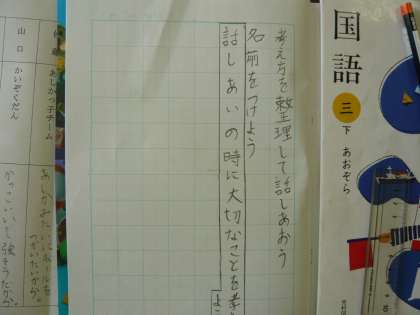 国語
三
下 あおぞら
考え方を整理して話しあおう
名前をつけよう
話しあいの時に大切なことを考
あしかっ子チーム
山口 かいぞくだん
かっこいいし強そうだから。